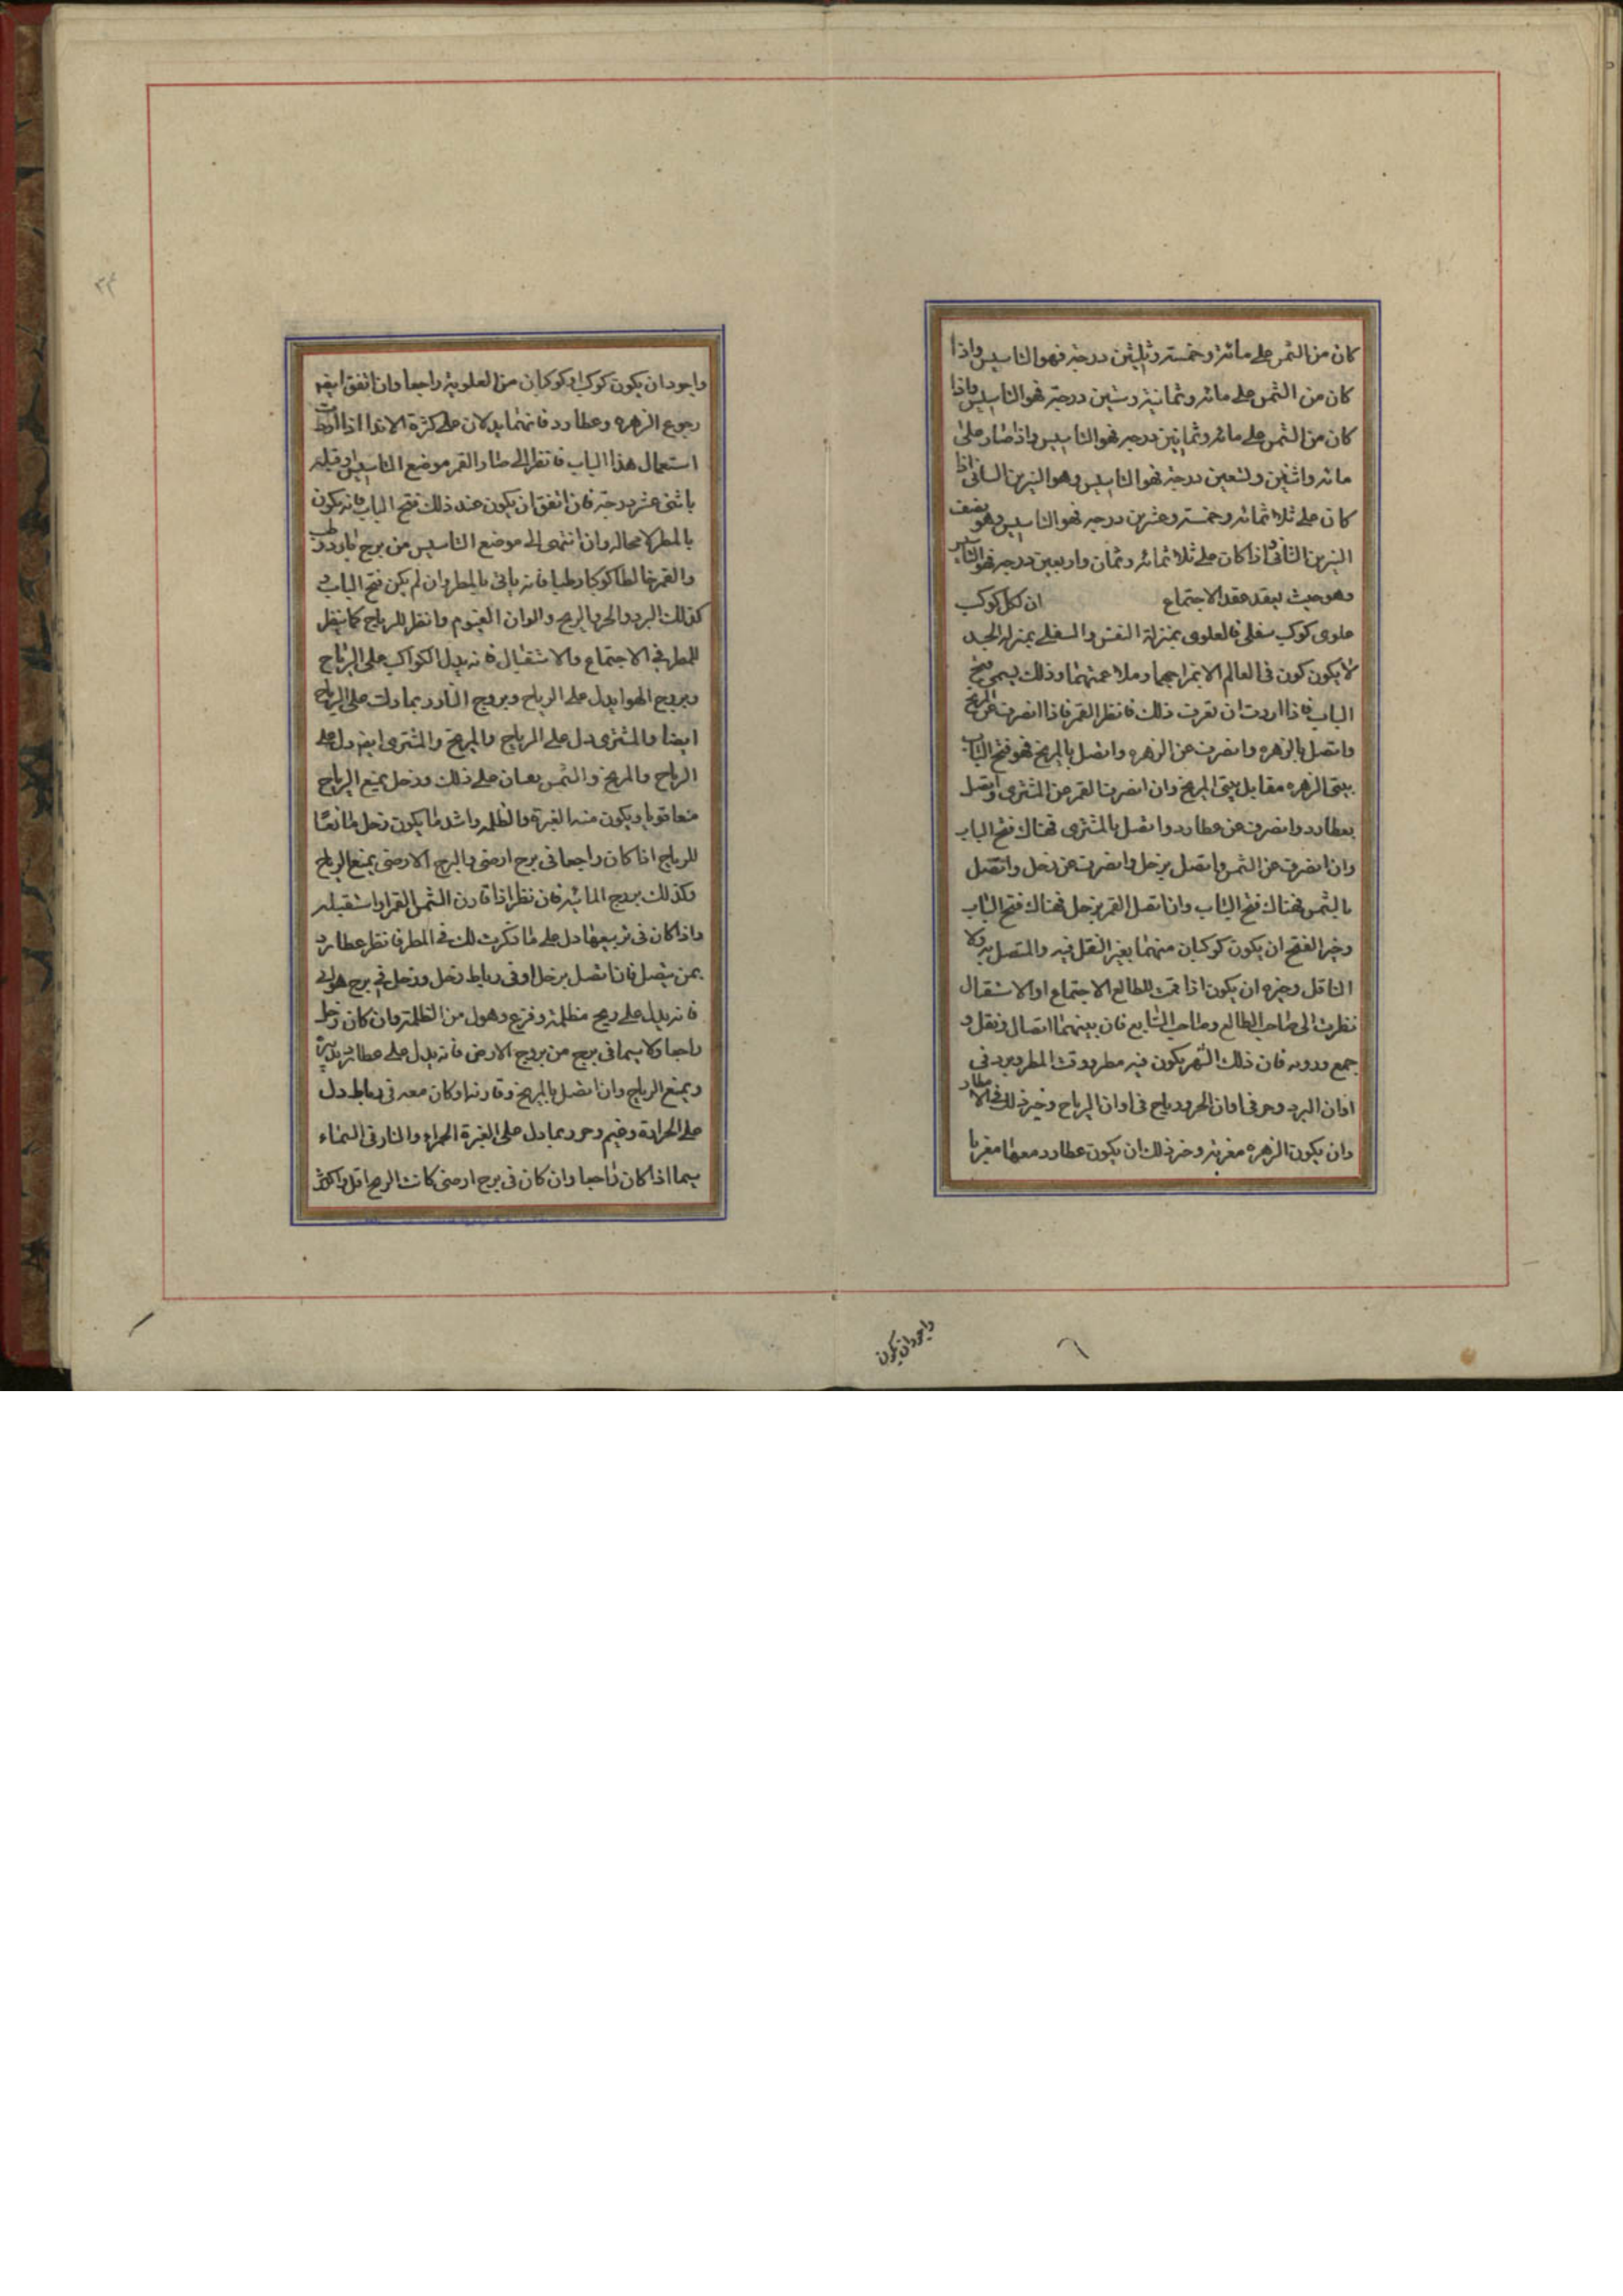 كان من الشمس على مائة وخمسة وثلثين درجة فهو التاسيس واذا
كان من الشمس على مائة وثمانية وستين درجة فهو التاسيس واذا
كان من الشمس على مائة وثمانين درجة فهو التاسيس واذا صار على
مائة واثنين وتسعين درجة فهو التاسيس وهو النيرين الثاني اذا
كان على ثلاثمائة وخمسة وعشرين درجة فهو التاسيس وهو نصف
النيرين الثاني واذا كان على ثلاثمائة وثمان واربعين درجة فهو التاسيس
وهو حيث يعقد عقد الاجتماع ان لكل كوكب
علوى كوكب سفلى فالعلوى بمنزلة النفس والسفلى بمنزلة الجسد
لا يكون كون فى العالم الا بتمزاجهما وملاءمتهما وذلك يسمى فتح
الباب فاذا اردت ان تعرف ذلك فانظر القمر فاذا انصرف عن المريخ
واتصل بالزهره وانصرف عن الزهره واتصل بالمريخ فهو فتح الباب
بيتى الزهره مقابل بيتى المريخ وان انصرف القمر عن المشترى واتصل
بعطارد وانصرف عن عطارد واتصل بالمشترى فهناك فتح الباب
وان انصرف عن الشمس واتصل بزحل وانصرف عن زحل واتصل
بالشمس فهناك فتح الباب وان اتصل القمر بزحل فهناك فتح الباب
وخير الفتح ان يكون كوكبان منهما بغير النقل فيه والمتصل به ولا
الناقل وخيره ان يكون اذا قمت الطالع الاجتماع او الاستقبال
نظرت الى صاحب الطالع وصاحب السابع فان بينهما اتصال ونقل و
جمع ورد به فان ذلك الشهر يكون فيه مطر وقت المطر وبرد فى
اوان البرد وحر فى اوان الحر ورياح فى اوان الرياح وخير ذلك فى الامطار
وان يكون الزهره مغربة وخير ذلك ان يكون عطارد معها مغربا
واجود ان يكون
واجود ان يكون كوكب او كوكبان من العلوية راجعا وان اتفق ايضا
رجوع الزهره وعطارد فانهما يدلان على كثرة الانداء اذا اردت
استعمال هذا الباب فانظر الى صار القمر موضع التاسيس او قبله
باثنى عشر درجة فان اتفق ان يكون عند ذلك فتح الباب فانه يكون
بالمطر لا محالة وان انتهى الى موضع التاسيس من برج بارد رطب
والقمر خالطا كوكبا رطبا فانه ياتى بالمطر وان لم يكن فتح الباب و
كذلك البرد والحر والريح والوان الغيوم وانظر للرياح كما ينظر
للمطر فى الاجتماع والاستقبال فانه يدل الكواكب على الرياح
وبروج الهوا يدل على الرياح وبروج النار وربما دلت على الرياح
ايضا والمشترى دل على الرياح والمريخ والمشترى ايضا دل على
الرياح والمريخ والشمس يعسان على ذلك وزحل يمنع الرياح
منعا قويا ويكون منه الغبرة والظلمة واشد ما يكون زحل مانعا
للرياح اذا كان راجعا فى برج ارضى والبرج الارضى يمنع الرياح
وكذلك بروج المائية فان نظر اذا قارن الشمس القمر او استقبله
واذا كان فى تربيعها دل على ما ذكرت لك فى المطر فانظر عطارد
بمن يتصل فان اتصل بزحل او فى رباط زحل وزحل فى برج هوائى
فانه يدل على ريح مظلمة وفزع وهول من الظلمة وان كان زحل
راجعا ولا سيما فى برج من بروج الارض فانه يدل على عطارد
ويمنع الرياح وان اتصل بالمريخ وقارنه او كان معه فى رباط دل
على الحرارة وغيم وحر وربما دل على الغبرة الحمراء والنار فى السماء
سيما اذا كان راجعا وان كان فى برج ارضى كانت الريح اقل واكثر